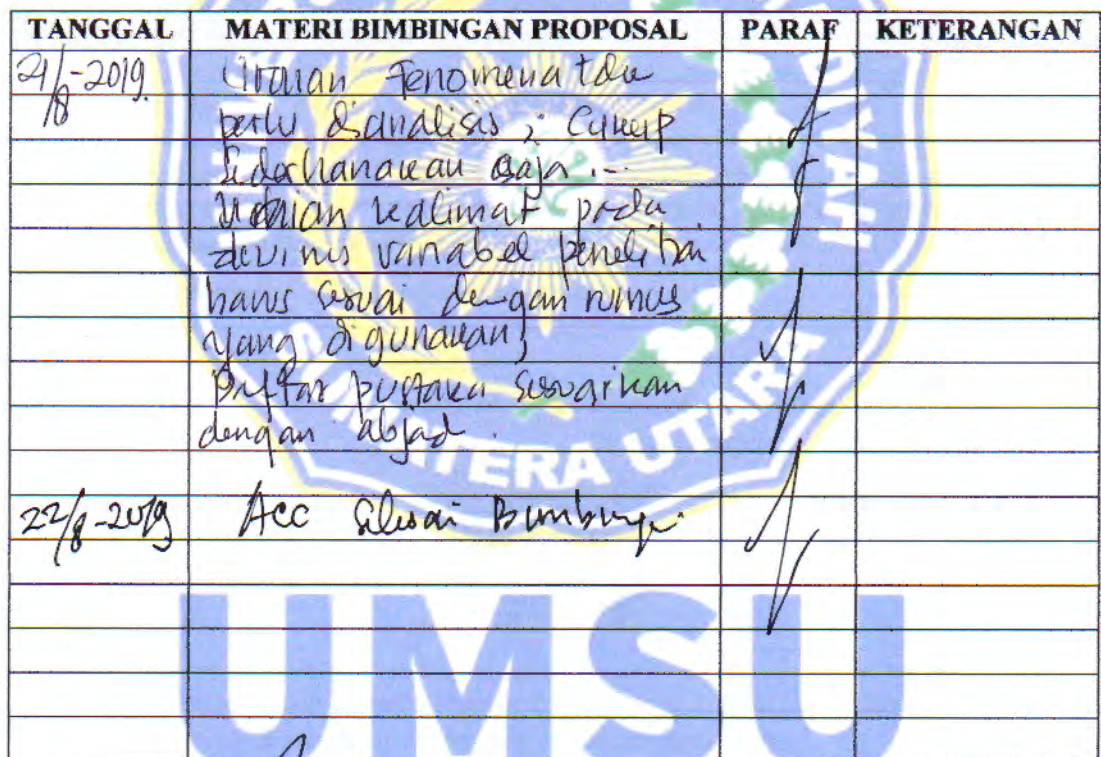 TANGGAL MATERI BIMBINGAN PROPOSAL PARAF KETERANGAN
21/8-2019. Uraian Fenomena tdk
perlu dianalisis, cukup
Sederhanakan saja...
Uraian kalimat pada
devinis variabel penelitian
harus sesuai dengan rumus
yang digunakan;
Daftar pustaka sesuaikan
dengan abjad.
22/8-2019 Acc Selesai Bimbingan
MATERA UTARA
UMSU